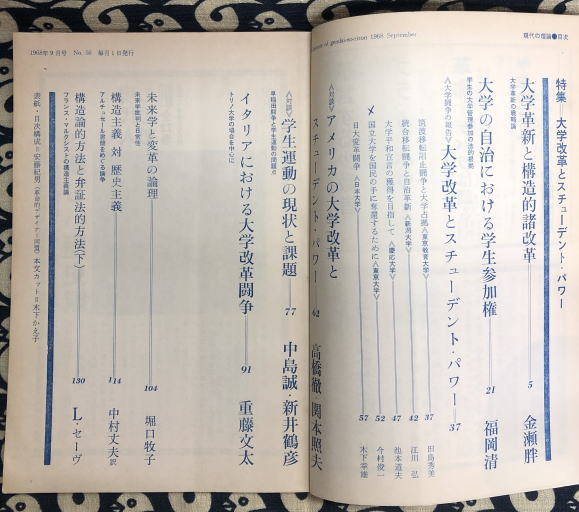 現代の理論●目次
特集=大学改革とスチューデント・パワー
大学革新と構造的諸改革 5 金瀬胖
大学革新の戦略論
大学の自治における学生参加権 21 福岡清
学生の大学管理参加の法的根拠
〈大学闘争の報告〉大学改革とスチューデント・パワー 37
筑波移転阻止闘争と大学占拠〈東京教育大学〉 37 田島秀美
統合移転闘争と自治革新〈新潟大学〉 42 江川弘
大学平和宣言の獲得を目指して〈慶応大学〉 47 池本道夫
国立大学を国民の手に奪還するために〈東京大学〉 52 今村俊一
日大変革闘争〈日本大学〉 57 木下幸雄
of gendai-no-riron 1968 September
〈対談〉アメリカの大学改革とスチューデント・パワー 62 高橋徹 関本照夫
1968年9月号 No. 56 毎月1日発行
〈対談〉学生運動の現状と課題 77 中島誠・新井鶴彦
早稲田闘争と学生運動の問題点
イタリアにおける大学改革闘争 91 重藤文太
トリノ大学の場合を中心に
未来学と変革の論理 104 堀口牧子
未来学批判と日常性
構造主義 対 歴史主義 114 中村丈夫訳
アルチュセール論稿をめぐる論争
構造論的方法と弁証法的方法(下) 130 L・セーヴ
フランス・マルクシストの構造主義論
表紙・目次構成=安藤紀男(革命的デザイナー同盟) 本文カット=木下かえ子